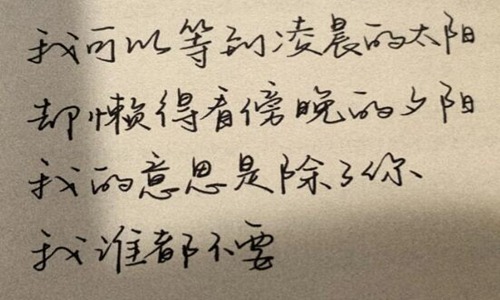 我可以等到凌晨的太阳
却懒得看傍晚的夕阳
我的意思是除了你
我谁都不要